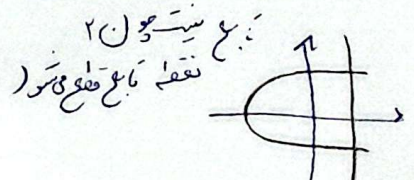 تابع نیست چون ۲
نقطه تابع قطع می‌شو(